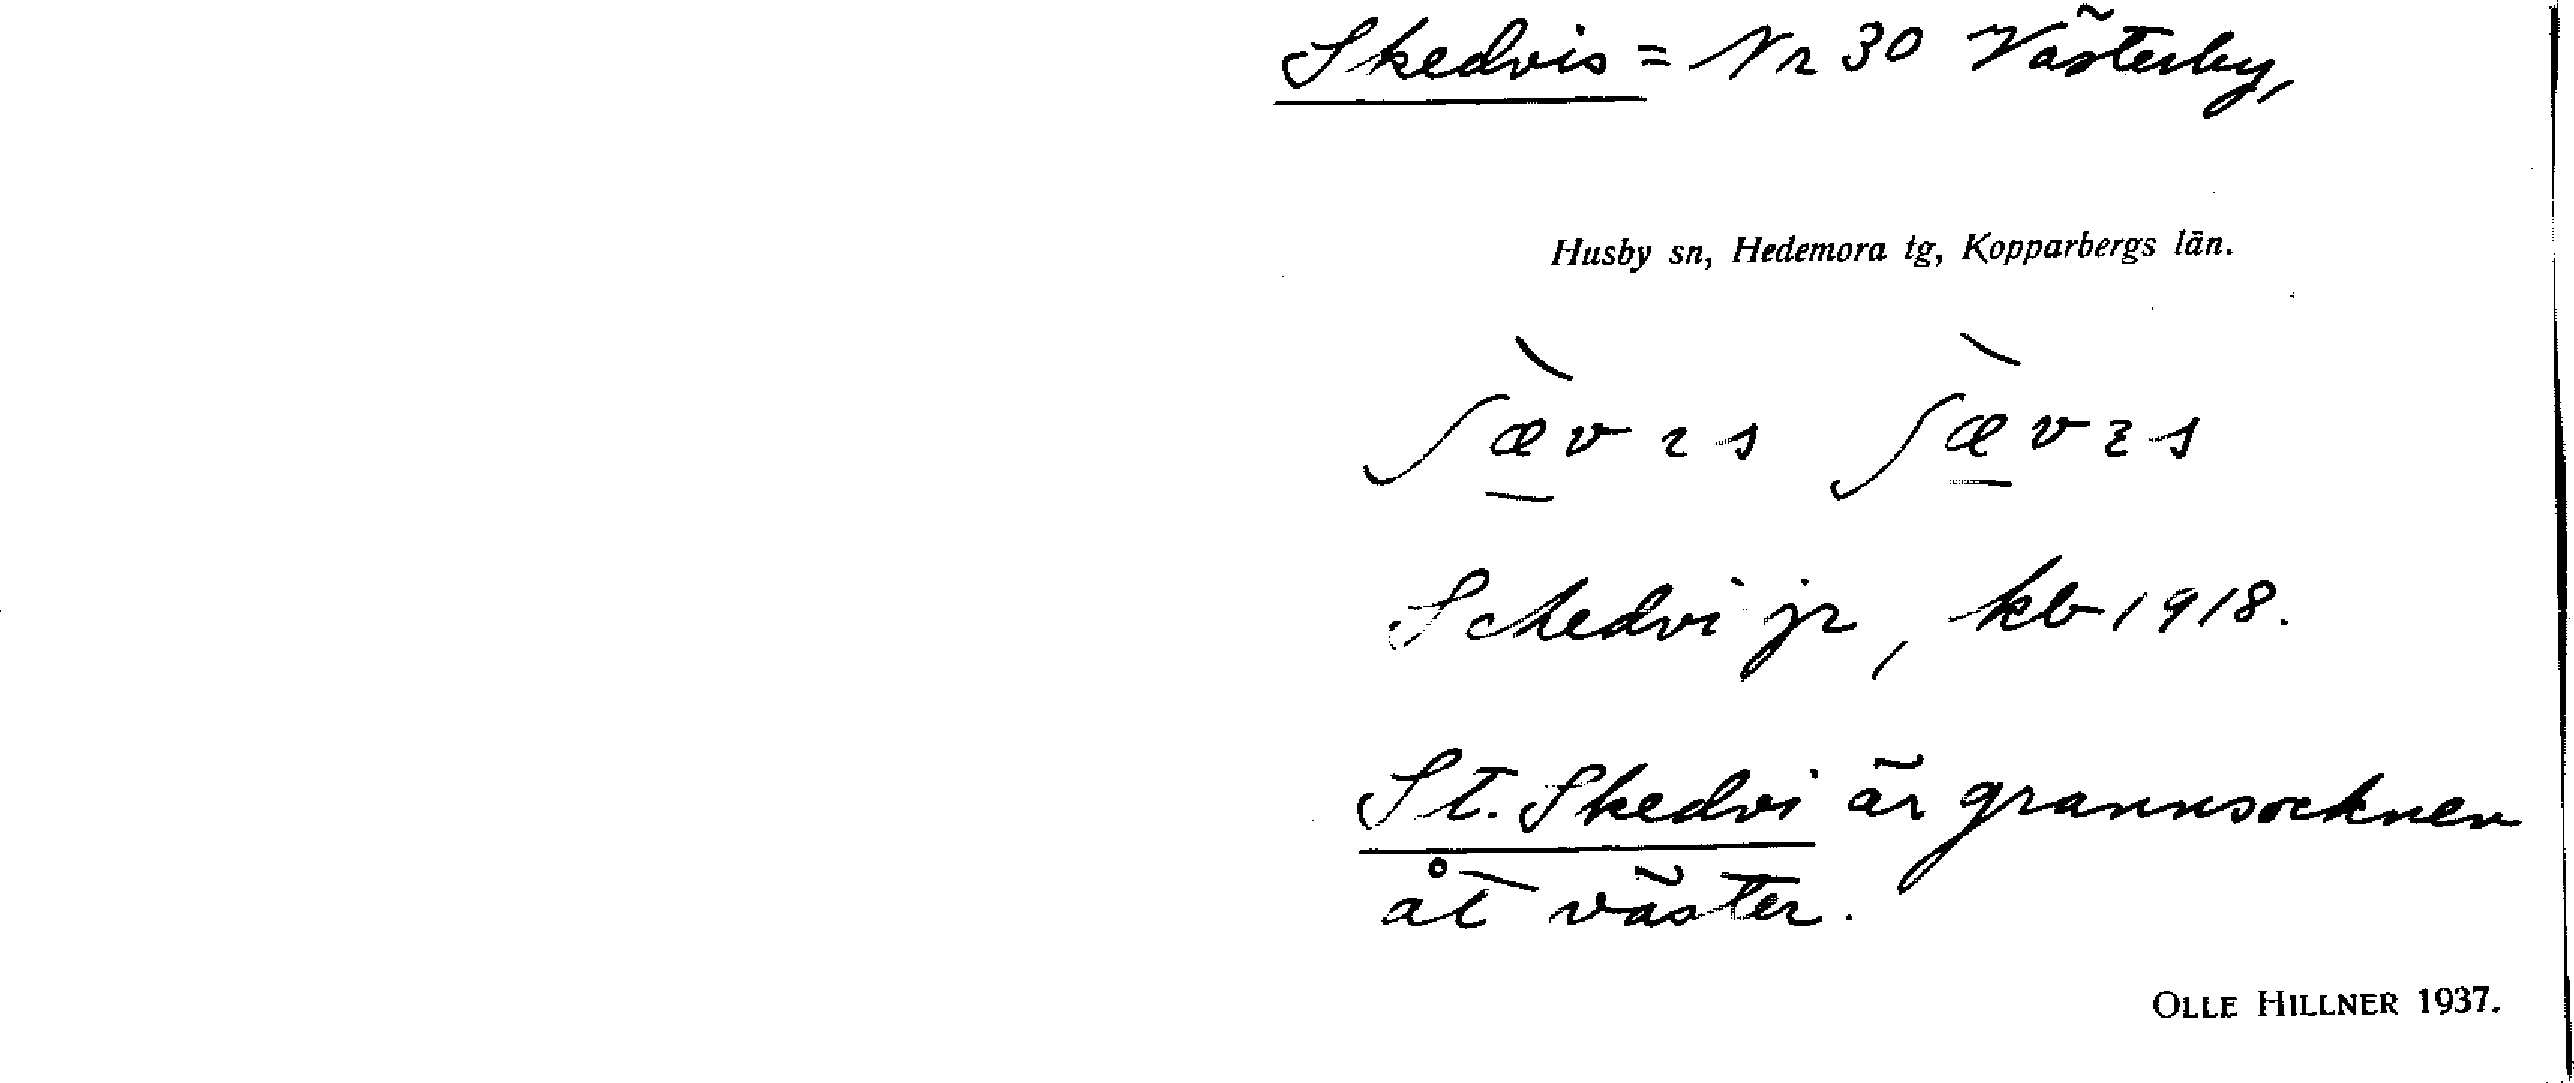 Skedvis = Nr 30 Västerby,
Husby sn, Hedemora tg, Kopparbergs län.
ʃæ̲̀vɩs ʃæ̲̀vɩs
Schedvi jr, kb 1918.
St. Skedvi är grannsocknen
åt väster.
OLLE HILLNER 1937.